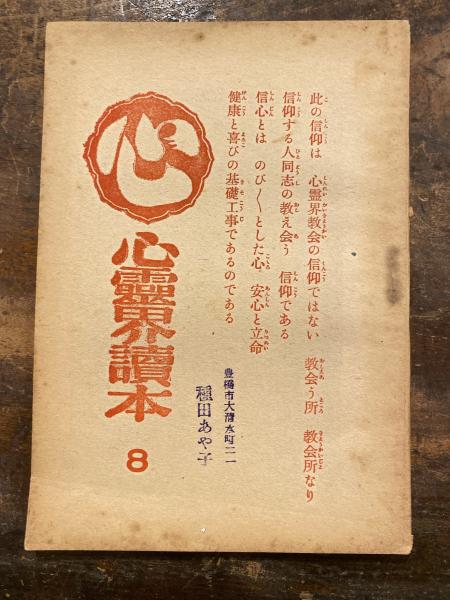 此の信仰は 心霊界教会の信仰ではない 教会う所 教会所なり
信仰する人同志の教え会う 信仰である
信心とは のび〳〵とした心 安心と立命
健康と喜びの基礎工事であるのである
心
心霊界讀本
8
豊橋市大清水町二一
種田あや子